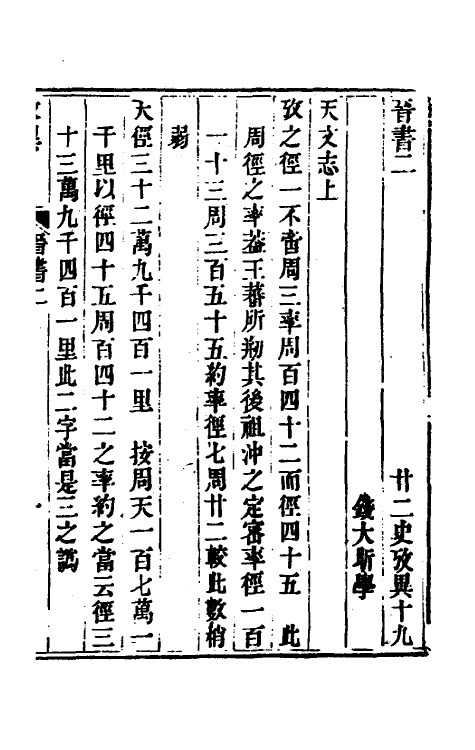 晉書二　廿二史攷異十九
錢大昕學
天文志上
攷之徑一不啻周三率周百四十二而徑四十五　此
周徑之率葢王蕃所剙其後祖沖之定密率徑一百
一十三周三百五十五約率徑七周廿二較此數稍
弱
天徑三十二萬九千四百一里　按周天一百七萬一
千里以徑四十五周百四十二之率約之當云徑三
十三萬九千四百一里此二字當是三之譌
晉書二　一